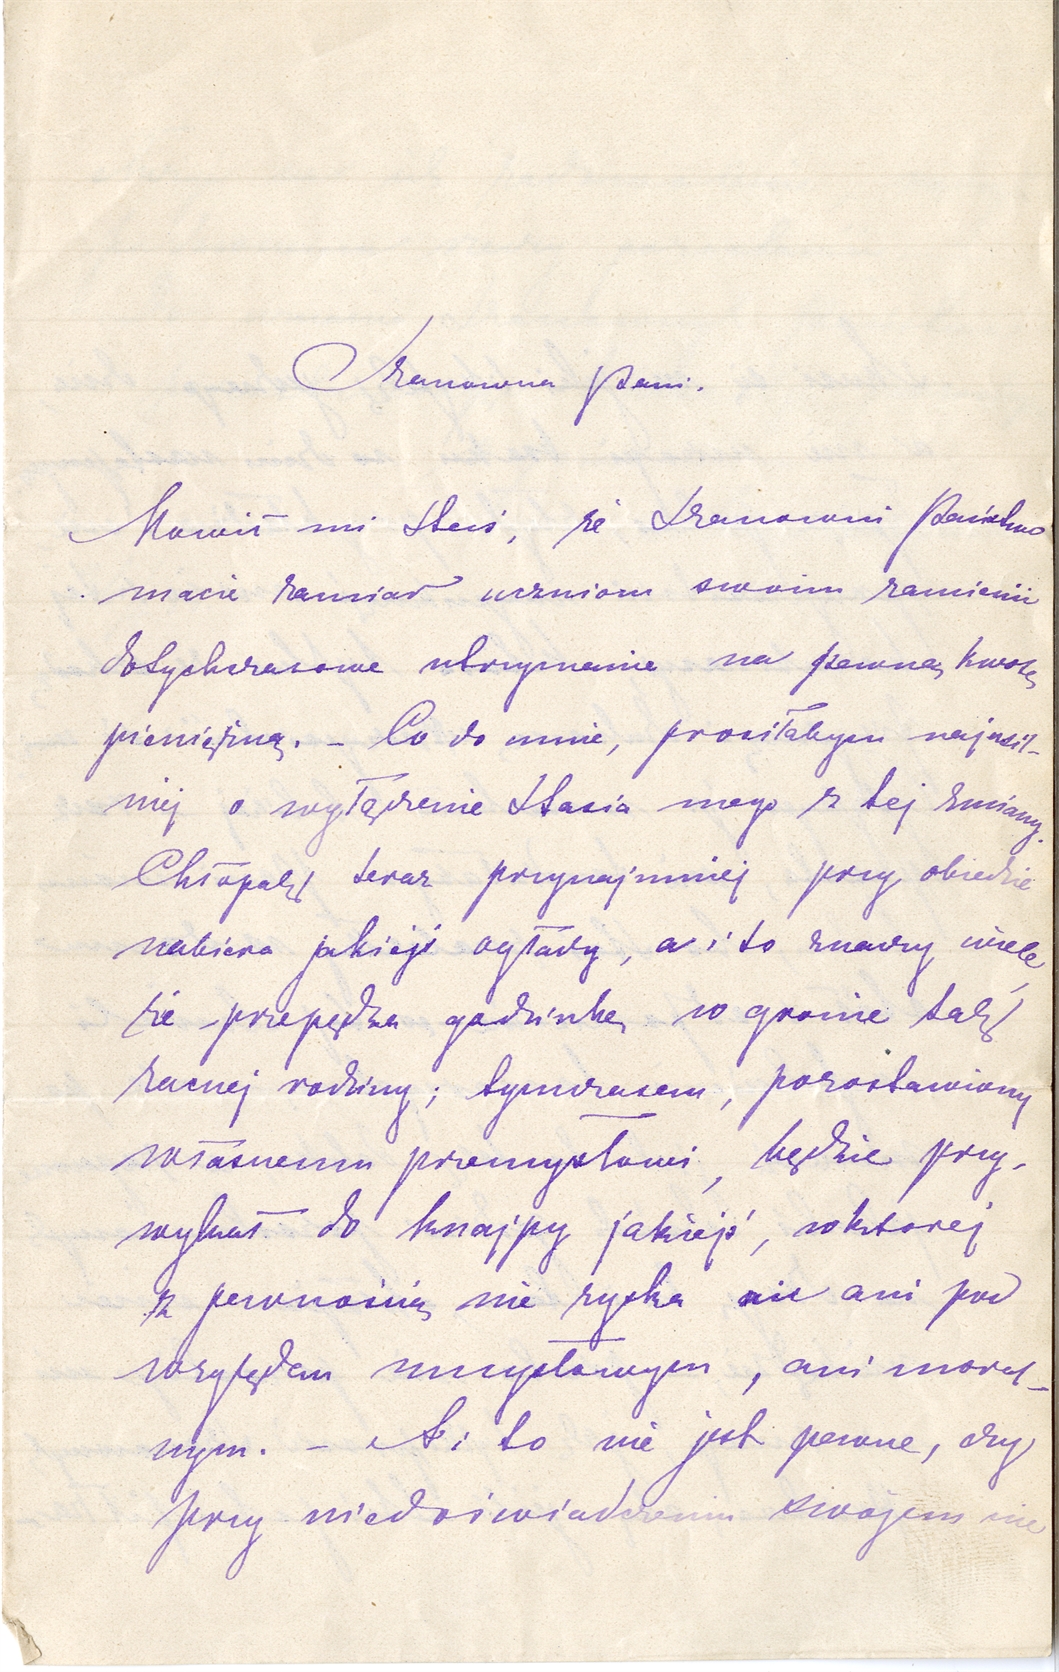 Szanowna Pani.
Mówił mi Staś, że Szanowni Państwo
macie zamiar uczniom swoim zamienić
dotychczasowe utrzymanie na pewną kwotę
pieniężną. – Co do mnie, prosiłabym najusil-
niej o wyłączenie Stasia mego z tej zmiany.
Chłopak teraz przynajmniej przy obiedzie
nabiera jakiejś ogłady, a i to znaczy wiele
że przepędza godzinkę w gronie tak
zacnej rodziny; tymczasem, pozostawiony
własnemu przemysłowi, będzie przy-
wykał do knajpy jakiejś, w której
z pewnością nie zyska nic ani pod
względem umysłowym, ani moral-
nym. – A i to nie jest pewne, czy
przy niedoświadczeniu swojem nie